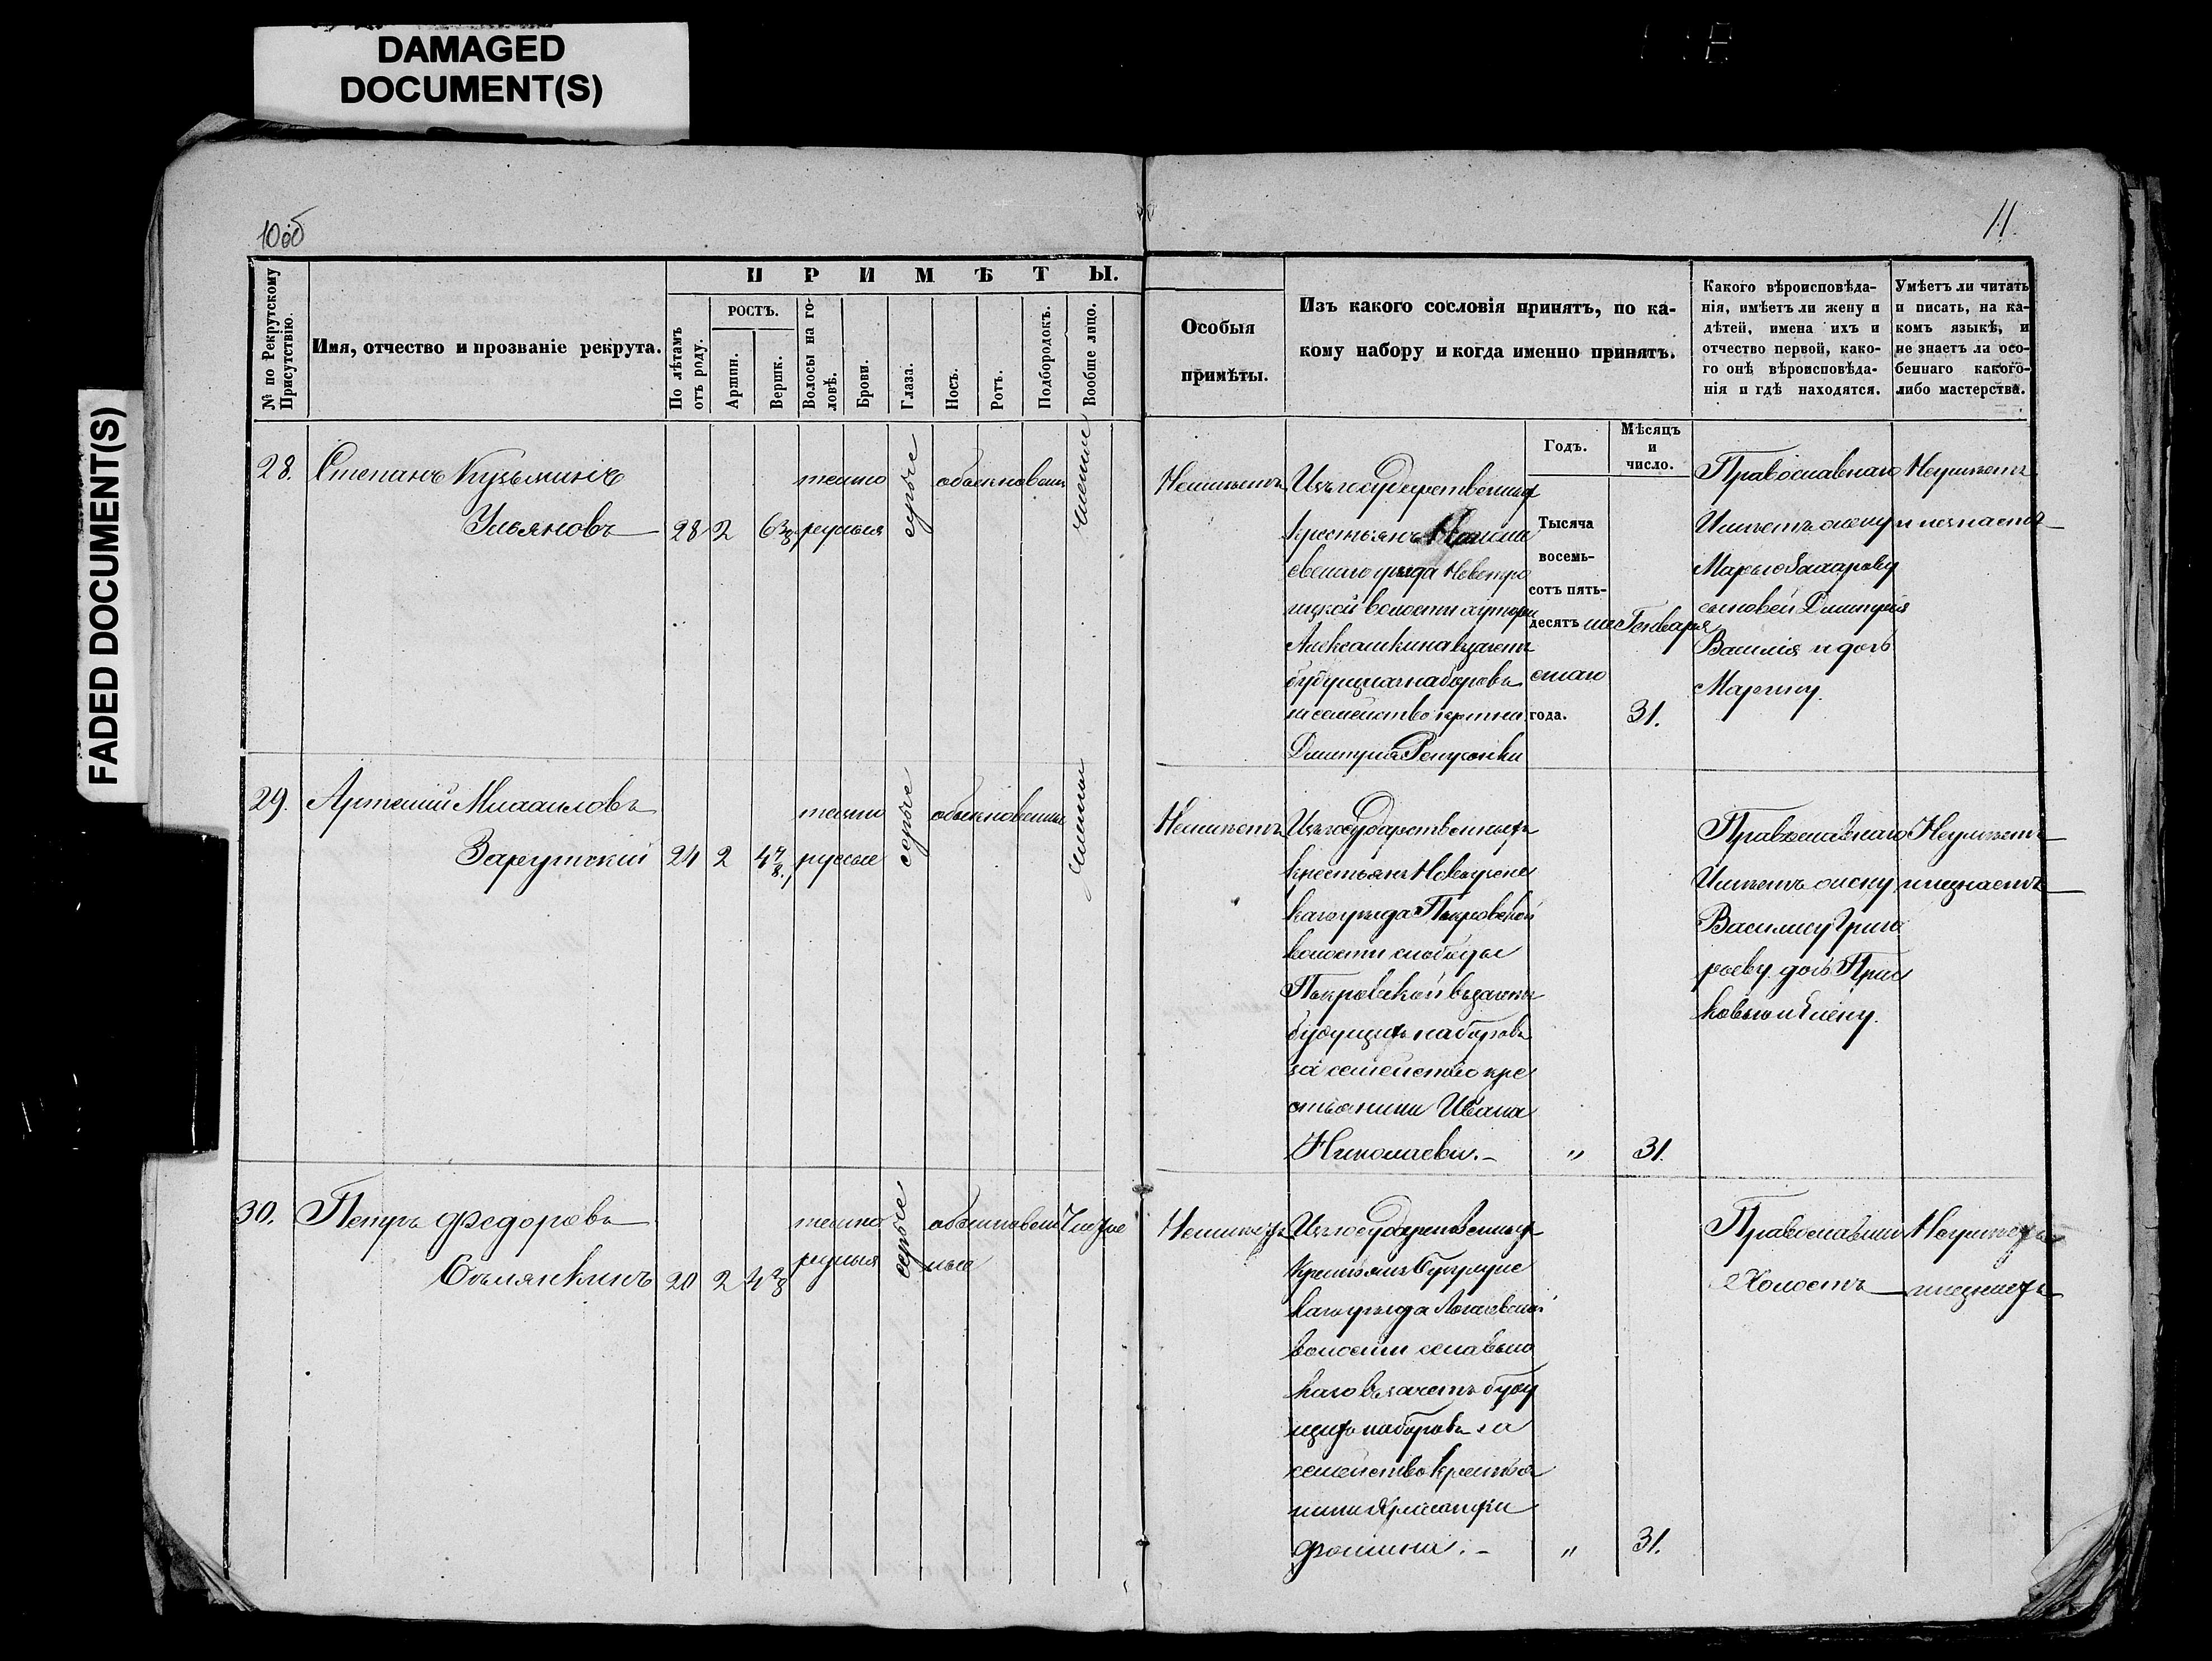 DAMAGED
DOCUMENT(S)
FADED DOCUMENT(S)
10об
11.
№ по Рекрутскому Присутствію.
Имя, отчество и прозваніе рекрута.
ПРИМѢТЫ.
По лѣтамъ отъ роду.
РОСТЪ.
Аршин.
Вершк.
Волосы на головѣ.
Брови.
Глаза.
Носъ.
Ротъ.
Подбородокъ.
Вообще лицо.
Особыя
примѣты.
Изъ какого сословія принятъ, по ка-
кому набору и когда именно принятъ.
Годъ.
Мѣсяцъ
и
число.
Какого вѣроисповѣда-
нія, имѣетъ ли жену и
дѣтей, имена ихъ и
отчество первой, како-
го онѣ вѣроисповѣда-
нія и гдѣ находятся.
Умѣетъ ли читать
и писать, на ка-
комъ языкѣ, и
не знаетъ ли осо-
беннаго какого-
либо мастерства.
28.
Степанъ Кузьминъ
Ульяновъ
28 2 6 3/8
темно
русыя
серые
обыкновен
чистое
Неимѣетъ
Изъ государственных
крестьянъ
евскаго уезда Новотро
ицкой волости хутора
Алексашкина взачетъ
будущихъ наборовъ
за семейство крестьян
Дмитрия
Тысяча
восемь-
сотъ пять-
десятъ ше
стаго
года.
Генваря
31.
Православнаго
Имѣетъ жену
Марью
сыновей Дмитрія
Василія и дочь
Марину.
Неумѣетъ
и незнаетъ
29.
Артемій Михаиловъ
Зарутскій
24 2 4 7/8
темно
русые
серые
обыкновенные
чистое
Неимѣетъ
Изъ государственныхъ
крестьянъ Новоузенс
каго уѣзда Покровской
волости слободы
Покровской взачетъ
будущихъ наборовъ
за семейство кре
стьянина Ивана
Николаева.
"
31.
Православнаго
Имѣетъ жену
Василису Григо
рьеву дочь Прас
ковью и Елену.
Неумѣетъ
и незнаетъ
30.
Петръ Федоровъ
20 2 4
темно
русыя
серые
обыкновен
ные
Чистое
Неимѣетъ
Изъ государственных
крестьянъ Бугурус
каго уѣзда
волости села
каго взачетъ буду
щихъ наборовъ за
семейство крестья
нина
Фомина.
"
31.
Православнаго
Холостъ
Неумѣетъ
и незнаетъ